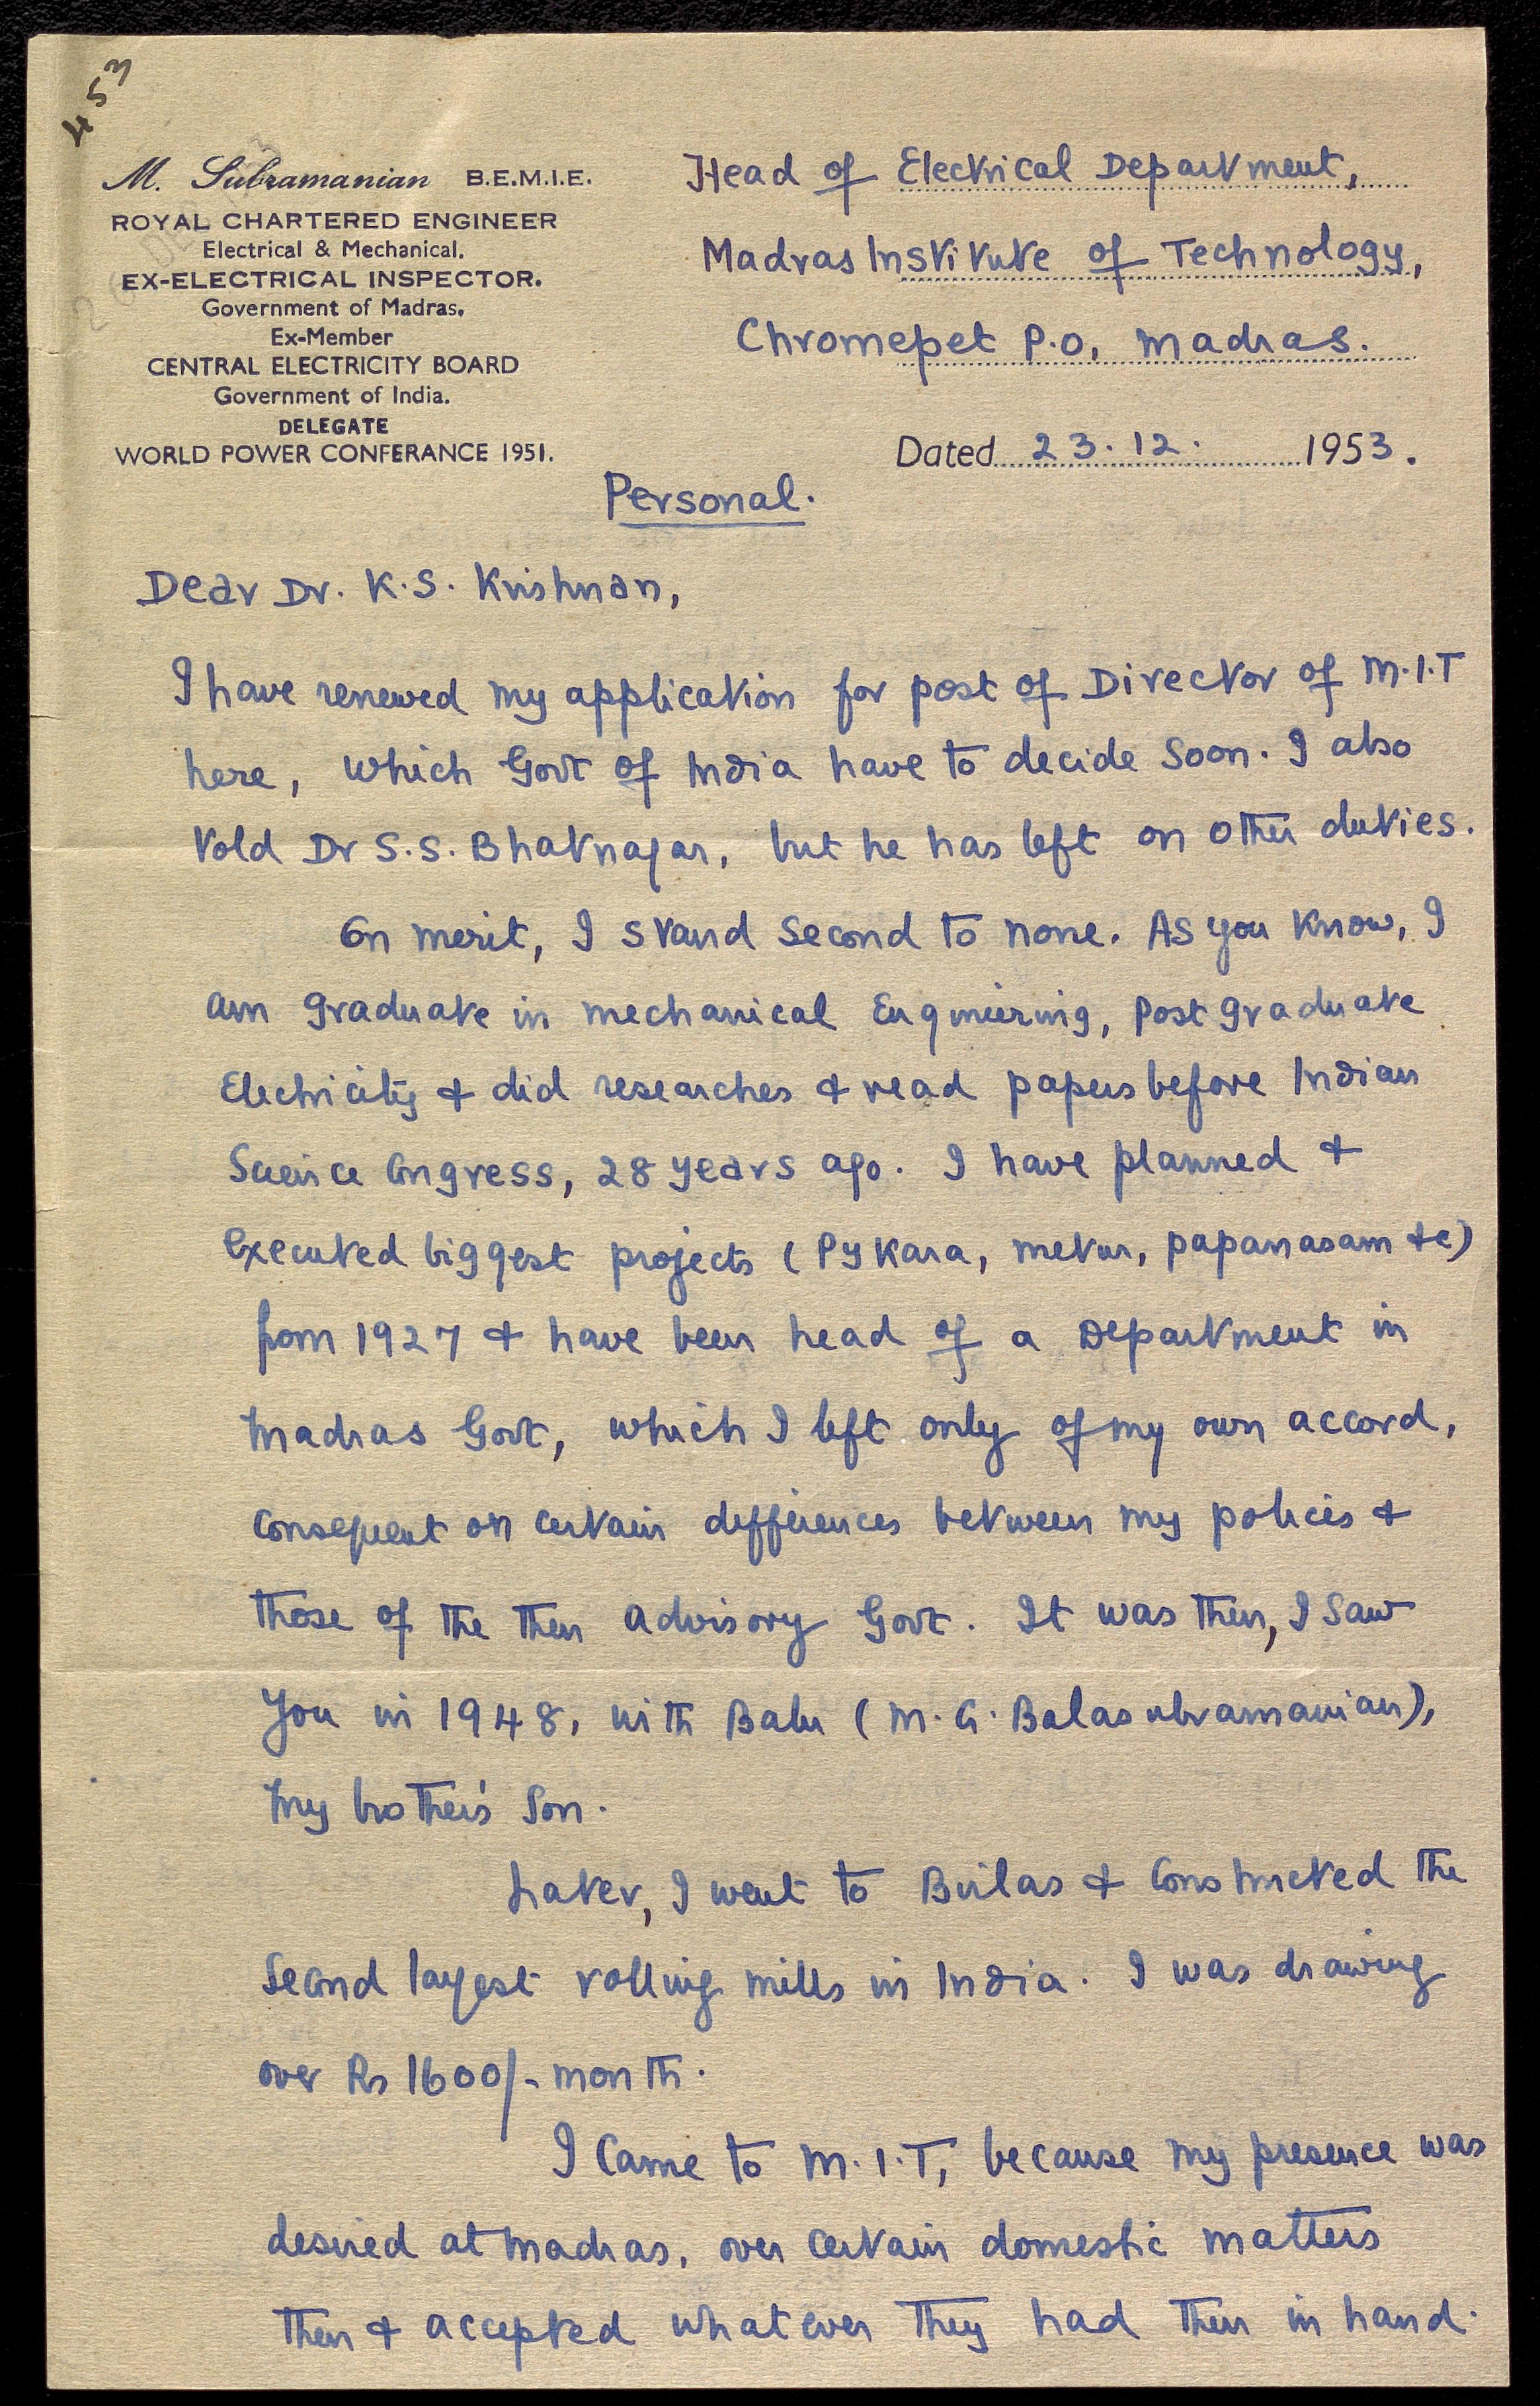 453
M. Subramanian B.E.M.I.E.
ROYAL CHARTERED ENGINEER
Electrical & Mechanical.
EX-ELECTRICAL INSPECTOR.
Government of Madras.
Ex-Member
CENTRAL ELECTRICITY BOARD
Government of India.
DELEGATE
WORLD POWER CONFERANCE 1951.
Head of Electrical Department,
Madras Institute of Technology,
Chromepet P.O, Madras.
Dated 23.12. 1953.
Personal.
Dear Dr. K.S. Krishnan,
I have renewed my application for post of Director of M.I.T
here, which Govt of India have to decide soon. I also
told Dr S.S. Bhatnagar, but he has left on other duties.
On merit, I stand second to none. As you know, I
am graduate in mechanical Engineering, Post graduate
Electricity & did researches & read papers before Indian
Science Congress, 28 years ago. I have planned &
executed biggest projects (Pykara, metur, papanasam &c)
from 1927 & have been head of a Department in
Madras Govt, which I left only of my own accord,
consequent on certain differences between my policies &
those of the then advisory Govt. It was then, I saw
you in 1948, with Balu (M.G. Balasubramanian),
my brother's son.
Later, I went to Birlas & constructed the
second largest rolling mills in India. I was drawing
over Rs 1600/- month.
I came to M.I.T, because my presence was
desired at Madras, over certain domestic matters
then & accepted whatever they had then in hand.